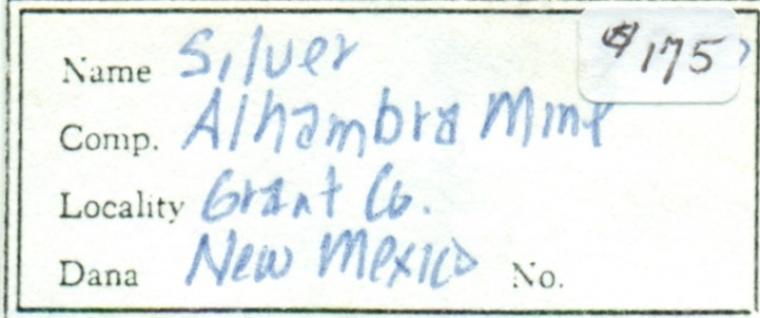 Name Silver $175
Comp. Alhambra Mine
Locality Grant Co.
Dana New Mexico No.